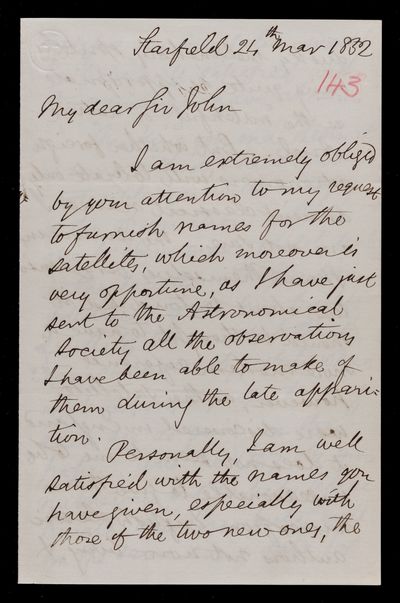 Starfield 24th Mar 1852
143
My dear Sir John
I am extremely obliged
by your attention to my request
to furnish names for the
satellites, which moreover is
very opportune, as I have just
sent to the Astronomical
Society all the observations
I have been able to make of
them during the late appari=
tion.
Personally, I am well
satisfied with the names you
have given, especially with
those of the two new ones, the